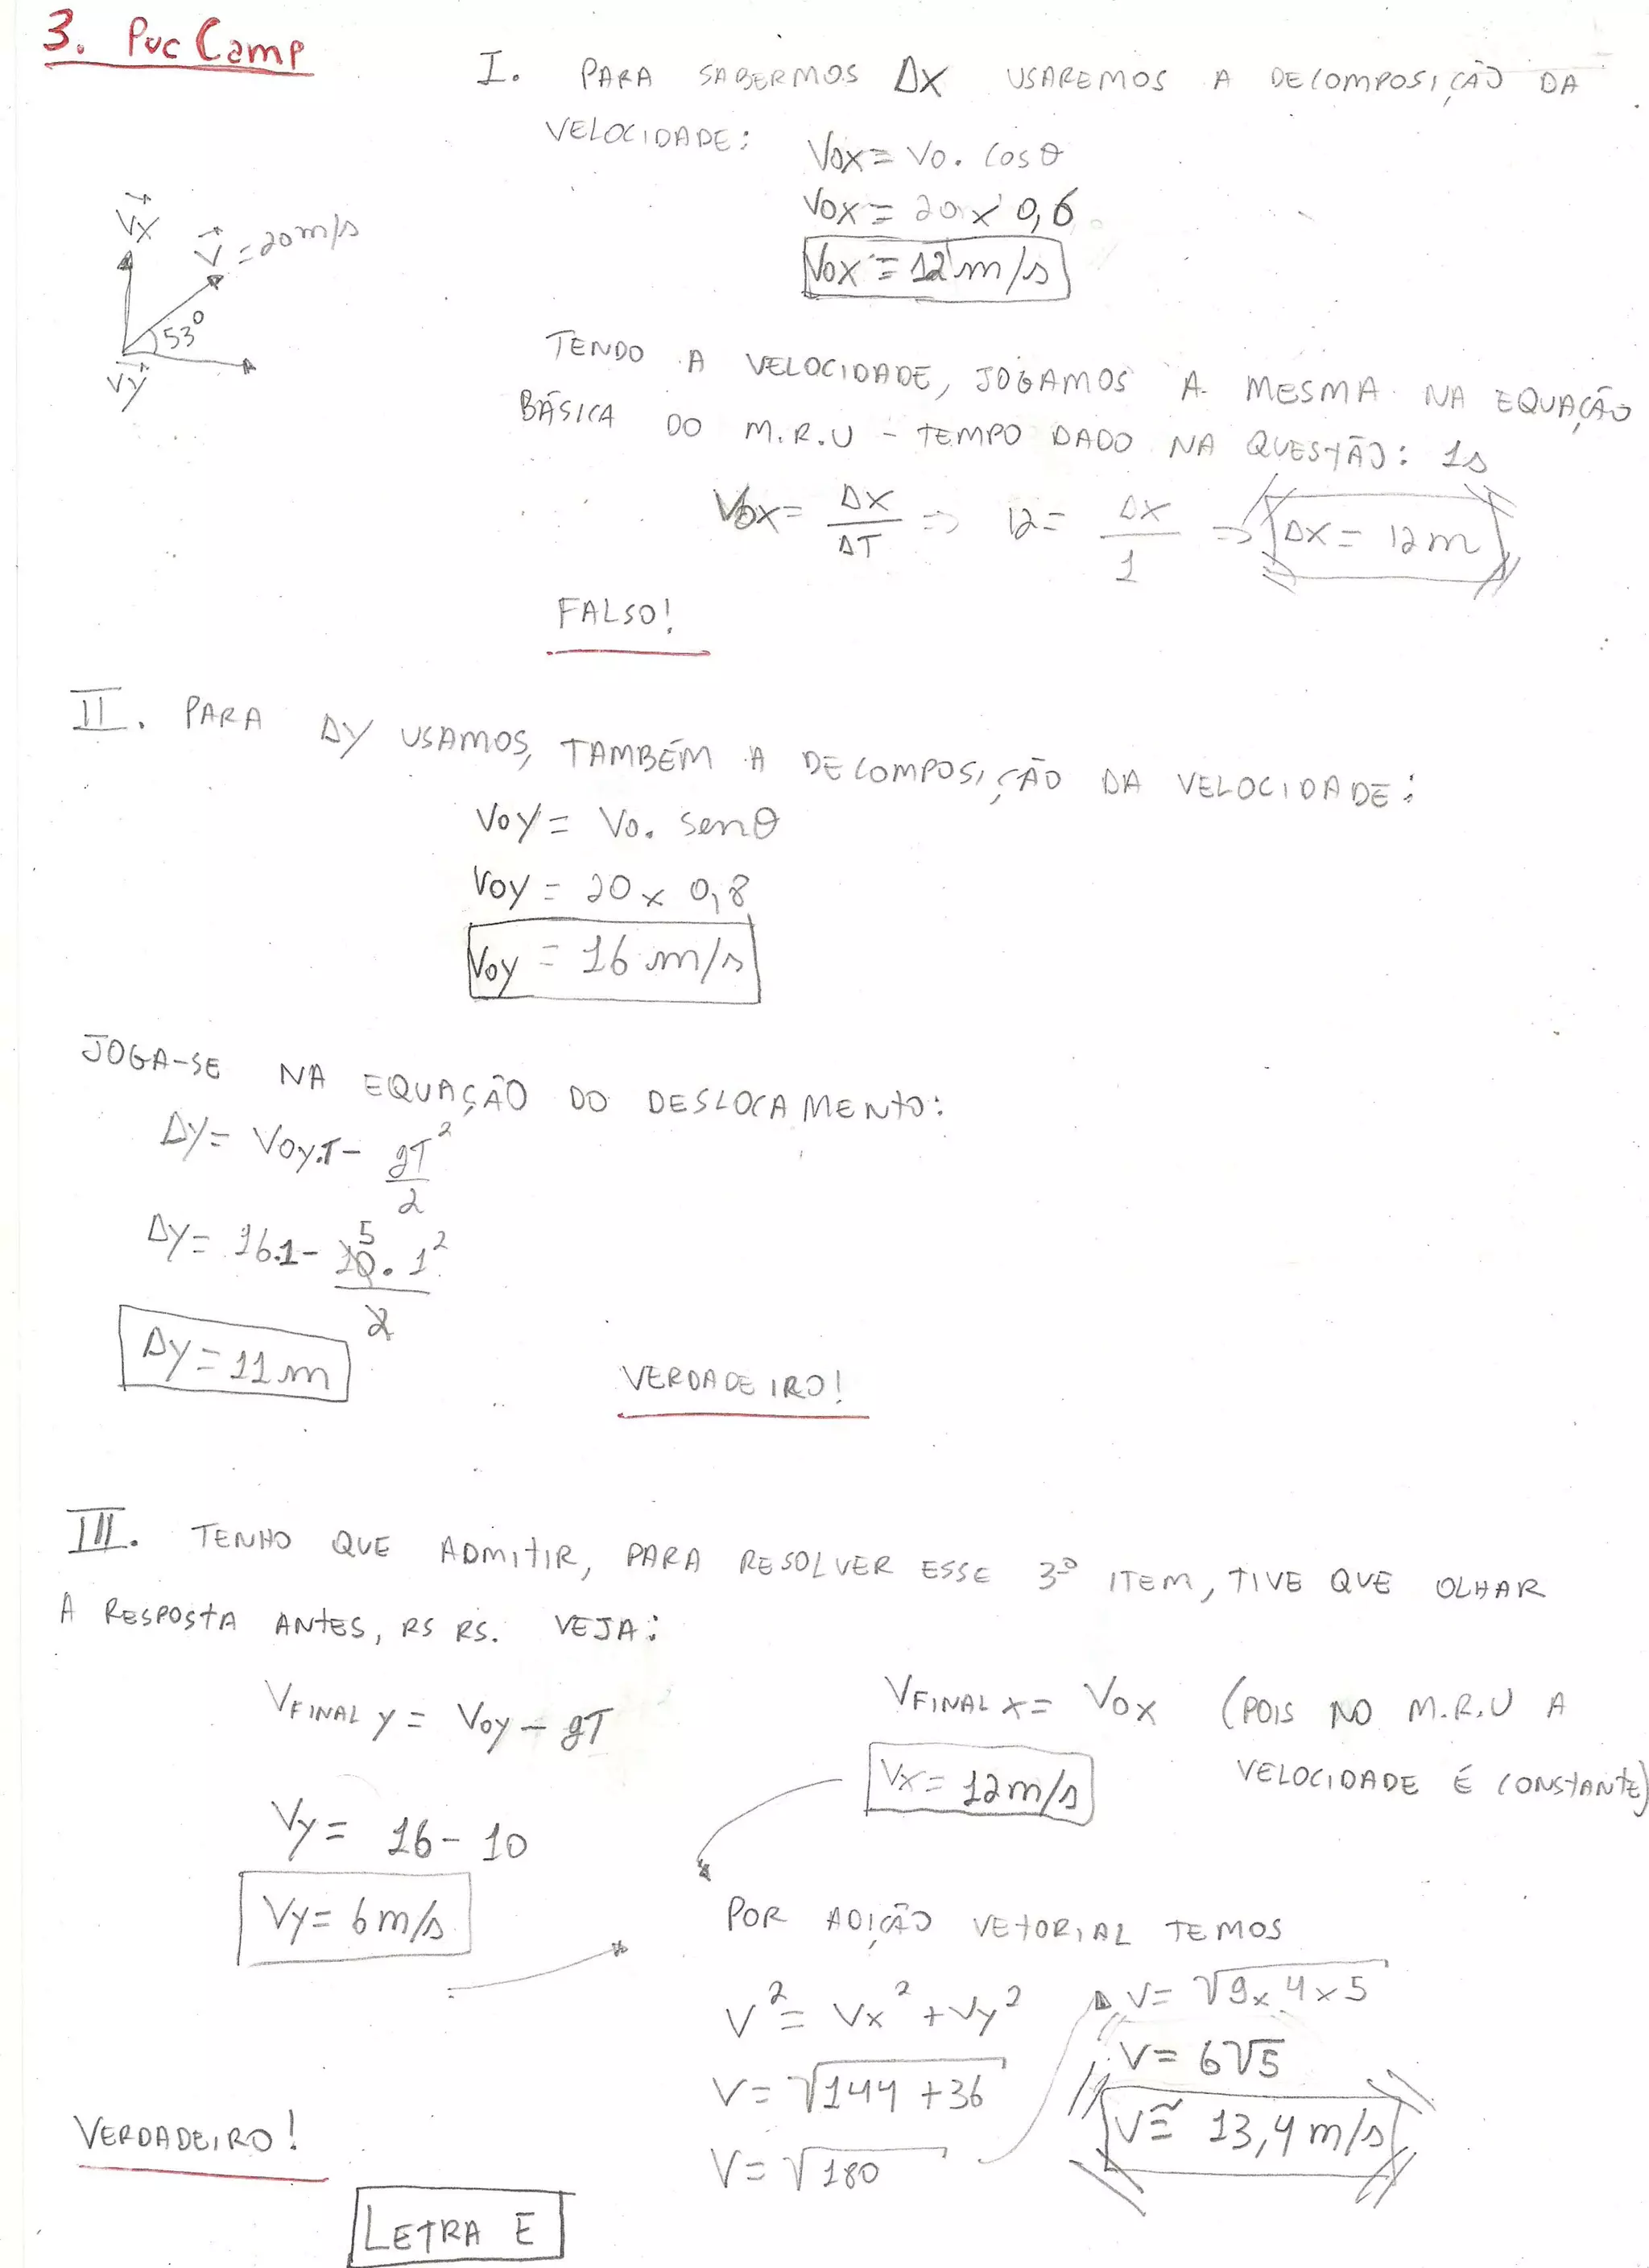 3. PUC CAMP
I. PARA SABERMOS ΔX USAREMOS A DECOMPOSIÇÃO DA
VELOCIDADE:
V0X = V0. cosθ
V0X = 20 x 0,6
V0X = 12 m/s
Vx
V = 20 m/s
53°
Vy
TENDO A VELOCIDADE, JOGAMOS A MESMA NA EQUAÇÃO
BÁSICA DO M.R.U - TEMPO DADO NA QUESTÃO: 1s
V0X = ΔX/ΔT => 12 = ΔX/1 => ΔX = 12 m
FALSO!
II. PARA ΔY USAMOS, TAMBÉM A DECOMPOSIÇÃO DA VELOCIDADE:
V0Y = V0. senθ
V0Y = 20 x 0,8
V0Y = 16 m/s
JOGA-SE NA EQUAÇÃO DO DESLOCAMENTO:
ΔY = V0Y.T - gT²/2
ΔY = 16.1 - 10 5 . 1²/2
ΔY = 11 m
VERDADEIRO!
III. TENHO QUE ADMITIR, PARA RESOLVER ESSE 3º ITEM, TIVE QUE OLHAR
A RESPOSTA ANTES, RS RS. VEJA:
VFINAL Y = V0Y - gT
VFINAL X = V0X (POIS NO M.R.U A
VELOCIDADE É CONSTANTE)
Vx = 12 m/s
Vy = 16 - 10
Vy = 6 m/s
POR ADIÇÃO VETORIAL TEMOS
V² = Vx² + Vy²
V = √144 + 36
V = √180
V = √9 x 4 x 5
V = 6√5
V ≅ 13,4 m/s
VERDADEIRO!
LETRA E